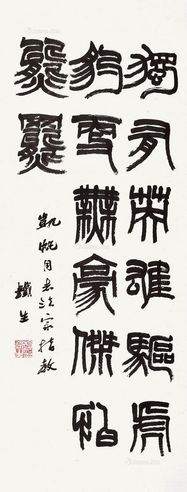 獨有英雄驅虎
豹更無豪傑怕
熊羆
凱帆同志法家指教
鐵生